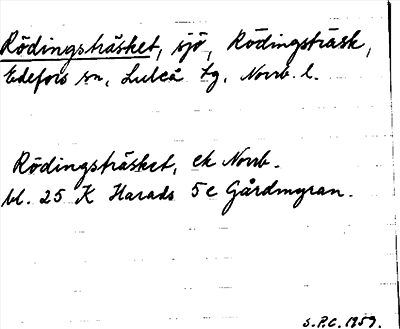 Rödingsträsket, sjö, Rödingsträsk,
Edefors sn, Luleå tg. Norrb. l.
Rödingsträsket, ek Norrb.
bl. 25 K Harads 5 e Gårdmyran.
S.P.C. 1959.